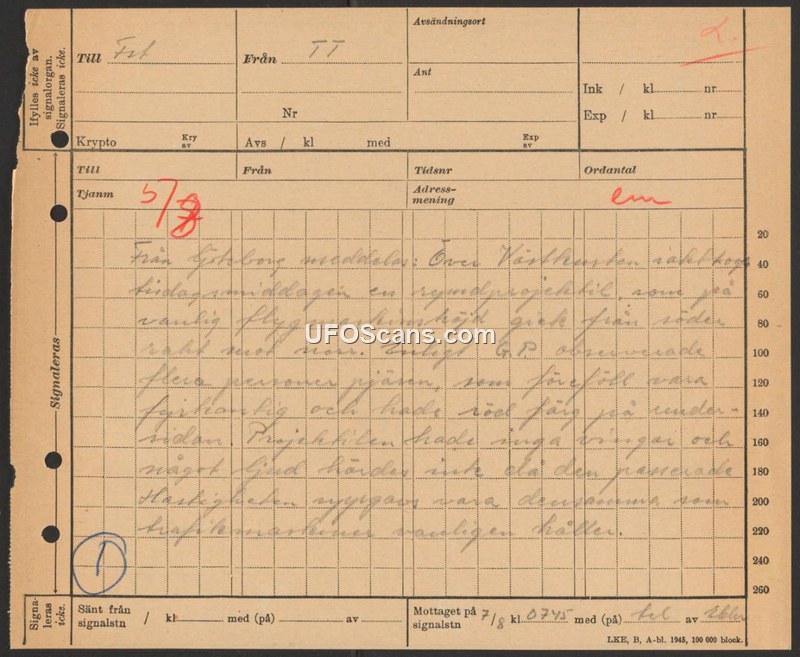 Ifylles icke av
signalorgan.
Signaleras icke.
Till Fst
Från TT
Avsändningsort
Ant
L.
Ink / kl nr
Exp / kl nr
Nr
Krypto
Kry
av
Avs / kl med
Exp
av
Till
Från
Tidsnr
Ordantal
Tjanm 5/8
Adress-
mening
em
Signaleras
Från Göteborg meddelas: Över Västkusten iakttogs
tisdagsmiddagen en rymdprojektil, som på
vanlig flygmaskinshöjd gick från söder
rakt mot norr. Enligt G.P. observerade
flera personer pjäsen, som föreföll vara
fyrkantig och hade röd färg på under-
sidan. Projektilen hade inga vingar och
något ljud hördes inte då den passerade
Hastigheten uppgavs vara densamma som
trafikmaskiner vanligen håller.
20
40
60
80
100
120
140
160
180
200
220
240
260
1
UFOScans.com
Signa-
leras
icke.
Sänt från
signalstn
/ kl med (på) av
Mottaget på
signalstn
7/8 kl 0745 med (på) tel av
LKE, B, A-bl. 1945, 100 000 block.